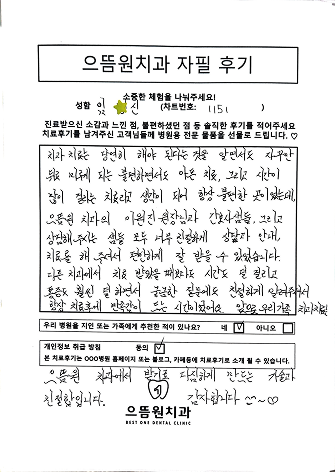 으뜸원치과 자필 후기
소중한 체험을 나눠주세요!
성함 임 신 (차트번호: 1151 )
진료받으신 소감과 느낀 점, 불편하셨던 점 등 솔직한 후기를 적어주세요
치료후기를 남겨주신 고객님들께 병원용 전문 물품을 선물로 드립니다. ♡
치과 치료는 당연히 해야 된다는 것을 알면서도 자꾸만
뒤로 미루게 되는 불편하면서도 아픈 치료, 그리고 시간이
많이 걸리는 치료라고 생각이 되어 항상 불편한 곳이 있는데,
으뜸원 치과의 이원진 원장님과 간호사샘들, 그리고
상담해 주시는 샘들 모두 너무 친절하게 상담과 안내,
치료를 해 주셔서 편안하게 잘 받을 수 있었습니다.
다른 치과에서 치료 받았을 때보다도 시간도 덜 걸리고
통증도 훨씬 덜 하면서 궁금한 질문에도 친절하게 알려주셔서
항상 치료후에 만족감이 드는 시간이었어요 앞으로 우리가족
우리 병원을 지인 또는 가족에게 추천한 적이 있나요? 네 ☑ 아니오 ☐
개인정보 취급 방침 동의 ☑
본 치료후기는 OOO병원 홈페이지 또는 블로그, 카페등에 치료후기로 소개 될 수 있습니다.
으뜸원 치과에서 받기로 다짐하게 만드는 기술과
친절함입니다. 감사합니다 ~♡
으뜸원치과
BEST ONE DENTAL CLINIC